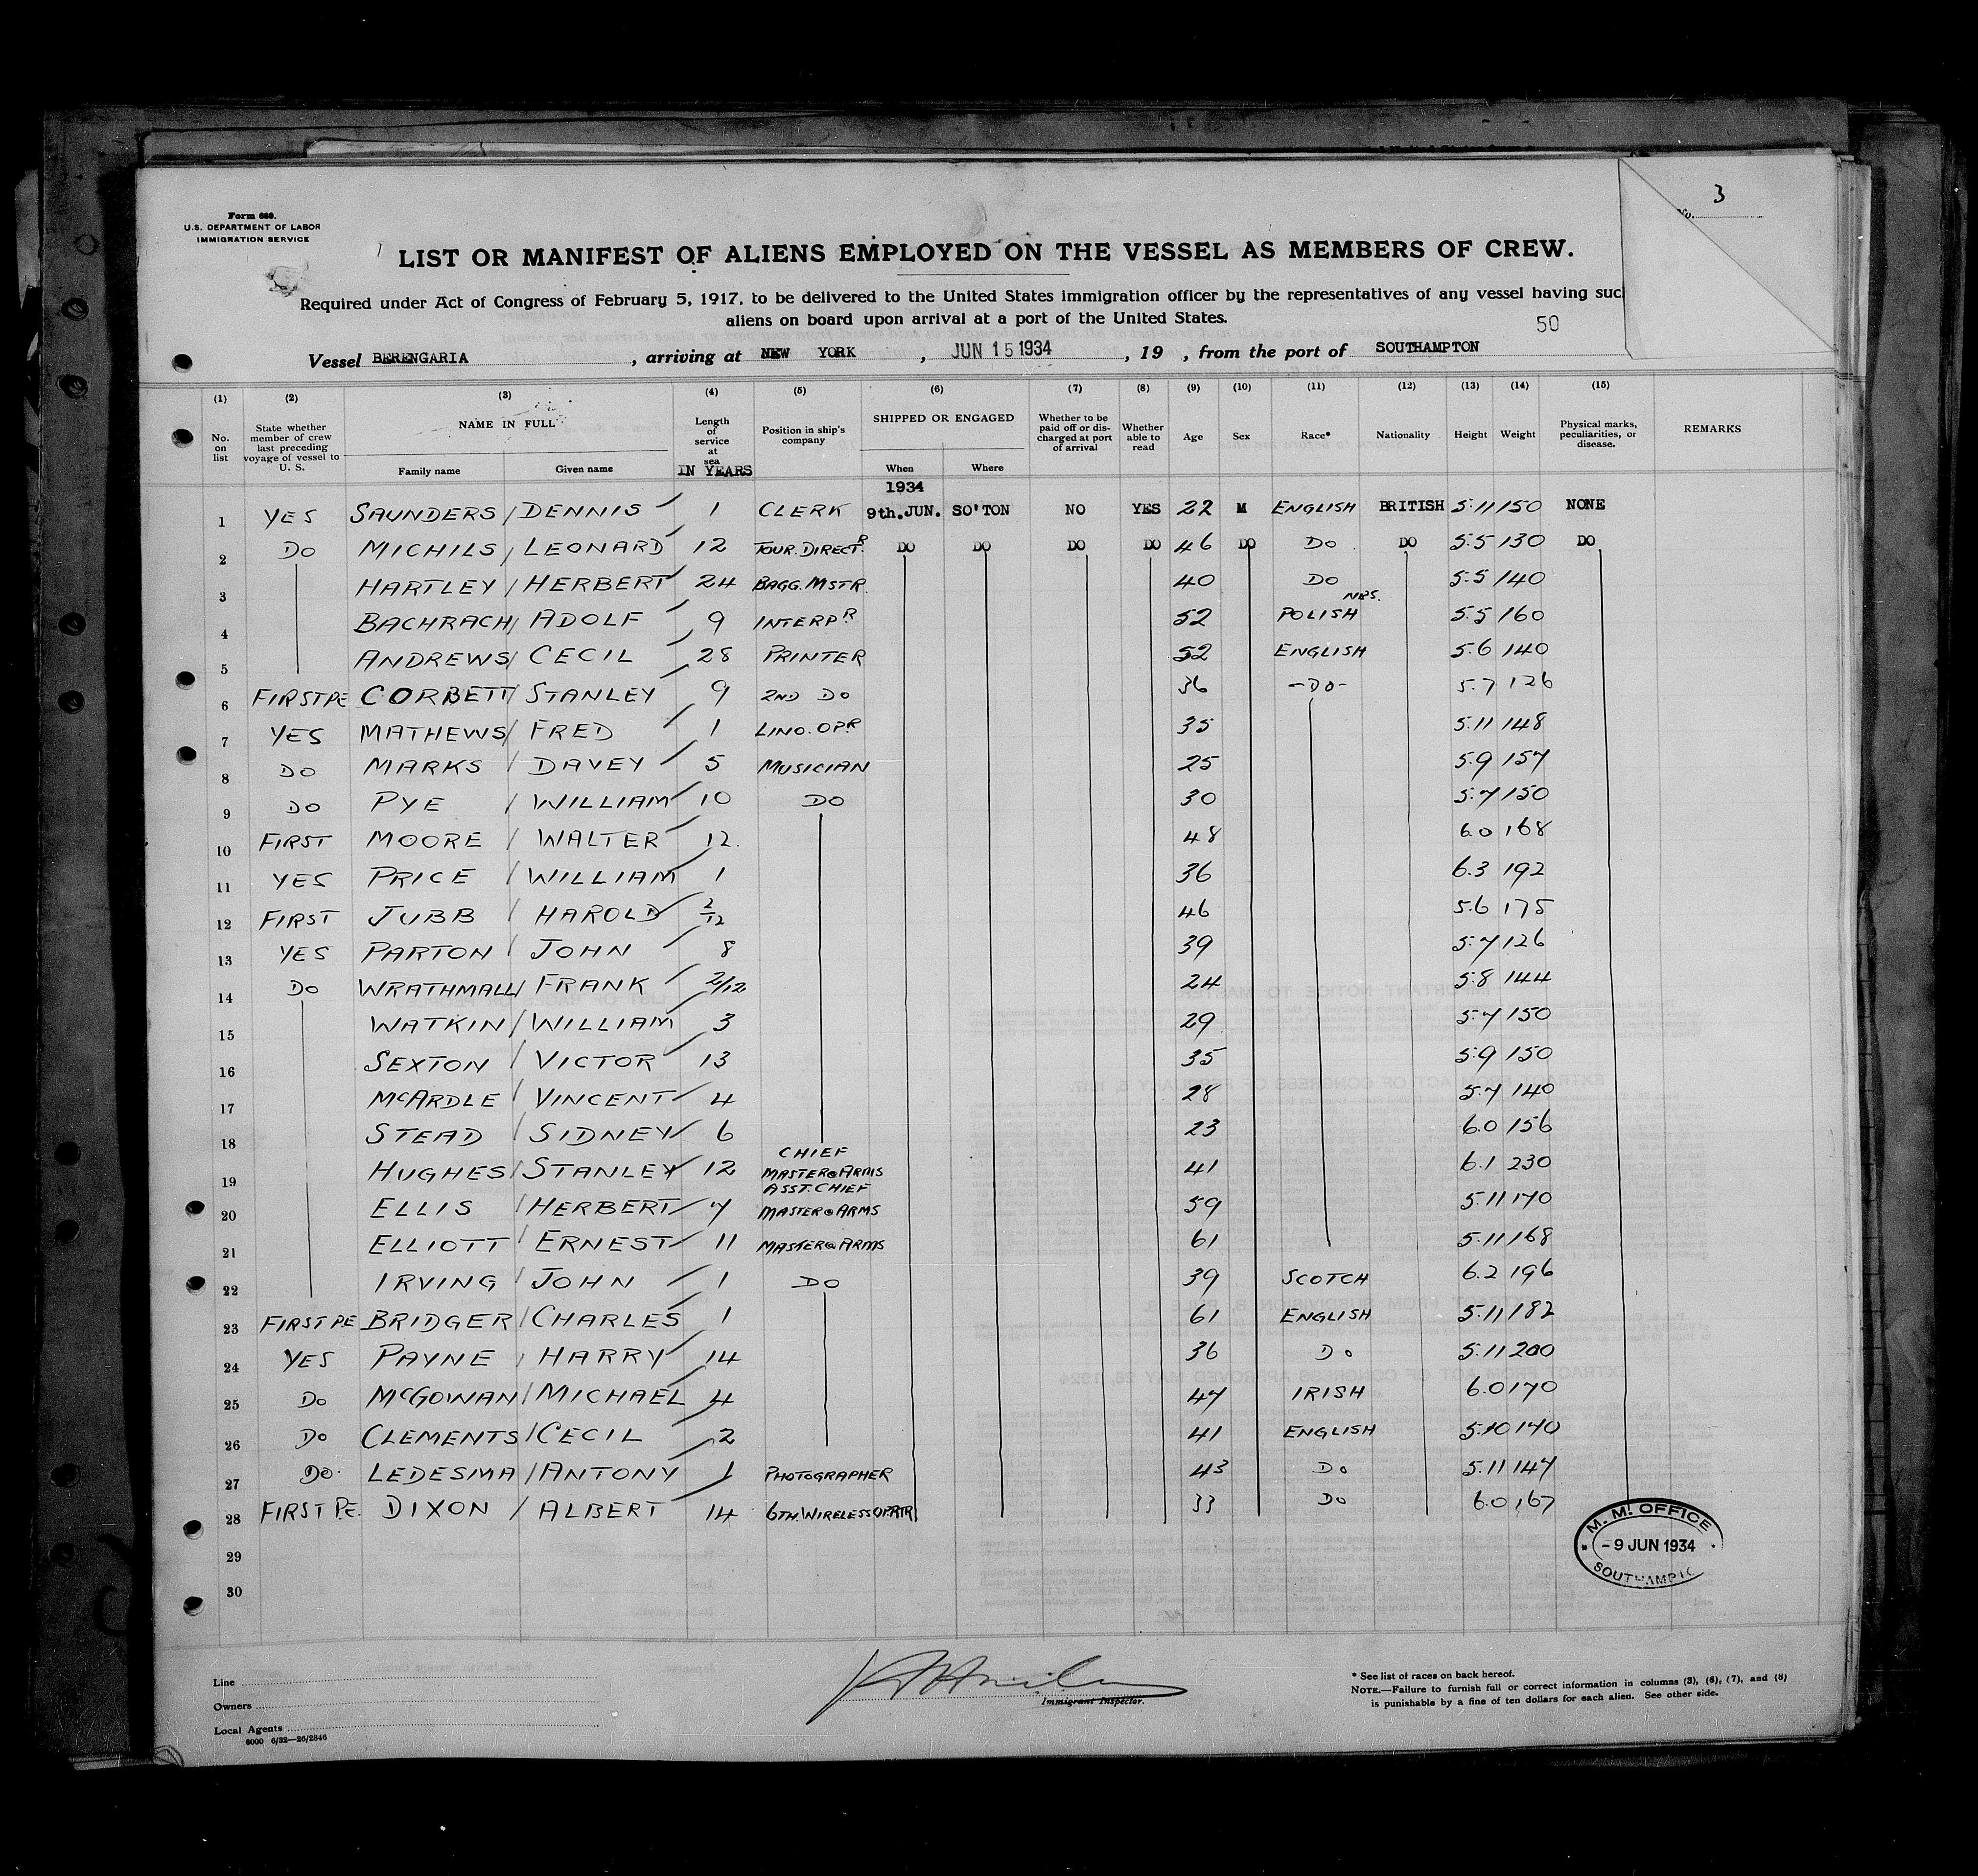 3
No.
Form 680.
U.S. DEPARTMENT OF LABOR
IMMIGRATION SERVICE
LIST OR MANIFEST OF ALIENS EMPLOYED ON THE VESSEL AS MEMBERS OF CREW.
Required under Act of Congress of February 5, 1917, to be delivered to the United States immigration officer by the representatives of any vessel having suc
aliens on board upon arrival at a port of the United States.
50
Vessel BERENGARIA, arriving at NEW YORK, JUN 15 1934, 19 , from the port of SOUTHAMPTON
(1) (2) (3) (4) (5) (6) (7) (8) (9) (10) (11) (12) (13) (14) (15)
No. on list State whether member of crew last preceding voyage of vessel to U. S. NAME IN FULL Family name Given name Length of service at sea IN YEARS Position in ship's company SHIPPED OR ENGAGED When Where Whether to be paid off or discharged at port of arrival Whether able to read Age Sex Race* Nationality Height Weight Physical marks, peculiarities, or disease. REMARKS
1934
1 YES SAUNDERS / DENNIS 1 CLERK 9th.JUN. SO'TON NO YES 22 M ENGLISH BRITISH 5.11 150 NONE
2 DO MICHILS / LEONARD 12 TOUR.DIRECTR DO DO DO DO 46 DO DO DO 5.5 130 DO
3 HARTLEY / HERBERT 24 BAGG.MSTR. 40 DO 5.5 140
4 BACHRACH / ADOLF 9 INTERPR 52 POLISH 5.5 160
5 ANDREWS / CECIL 28 PRINTER 52 ENGLISH 5.6 140
6 FIRST PE CORBETT / STANLEY 9 2ND DO 36 -DO- 5.7 126
7 YES MATHEWS / FRED 1 LINO.OPR 35 5.11 148
8 DO MARKS / DAVEY 5 MUSICIAN 25 5.9 157
9 DO PYE / WILLIAM 10 DO 30 5.7 150
10 FIRST MOORE / WALTER 12. 48 6.0 168
11 YES PRICE / WILLIAM 1 36 6.3 192
12 FIRST JUBB / HAROLD 2/12 46 5.6 175
13 YES PARTON / JOHN 8 39 5.7 126
14 DO WRATHMALL / FRANK 2/12 24 5.8 144
15 WATKIN / WILLIAM 3 29 5.7 150
16 SEXTON / VICTOR 13 35 5.9 150
17 McARDLE / VINCENT 4 28 5.7 140
18 STEAD / SIDNEY 6 23 6.0 156
19 HUGHES / STANLEY 12 CHIEF MASTER@ARMS 41 6.1 230
20 ELLIS / HERBERT 7 ASST.CHIEF MASTER@ARMS 59 5.11 170
21 ELLIOTT / ERNEST 11 MASTER@ARMS 61 5.11 168
22 IRVING / JOHN 1 DO 39 SCOTCH 6.2 196
23 FIRST PE BRIDGER / CHARLES 1 61 ENGLISH 5.11 182
24 YES PAYNE / HARRY 14 36 DO 5.11 200
25 DO McGOWAN / MICHAEL 4 47 IRISH 6.0 170
26 DO CLEMENTS / CECIL 2 41 ENGLISH 5.10 140
27 DO. LEDESMA / ANTONY 1 PHOTOGRAPHER 43 DO 5.11 147
28 FIRST P.E. DIXON / ALBERT 14 6TH.WIRELESS OP.RTR 33 DO 6.0 167
29
30
M. M. OFFICE
- 9 JUN 1934
SOUTHAMP
Line
Owners
Local Agents
6000 6/32—26/2846
Immigrant Inspector.
* See list of races on back hereof.
NOTE.—Failure to furnish full or correct information in columns (3), (6), (7), and (8)
is punishable by a fine of ten dollars for each alien. See other side.